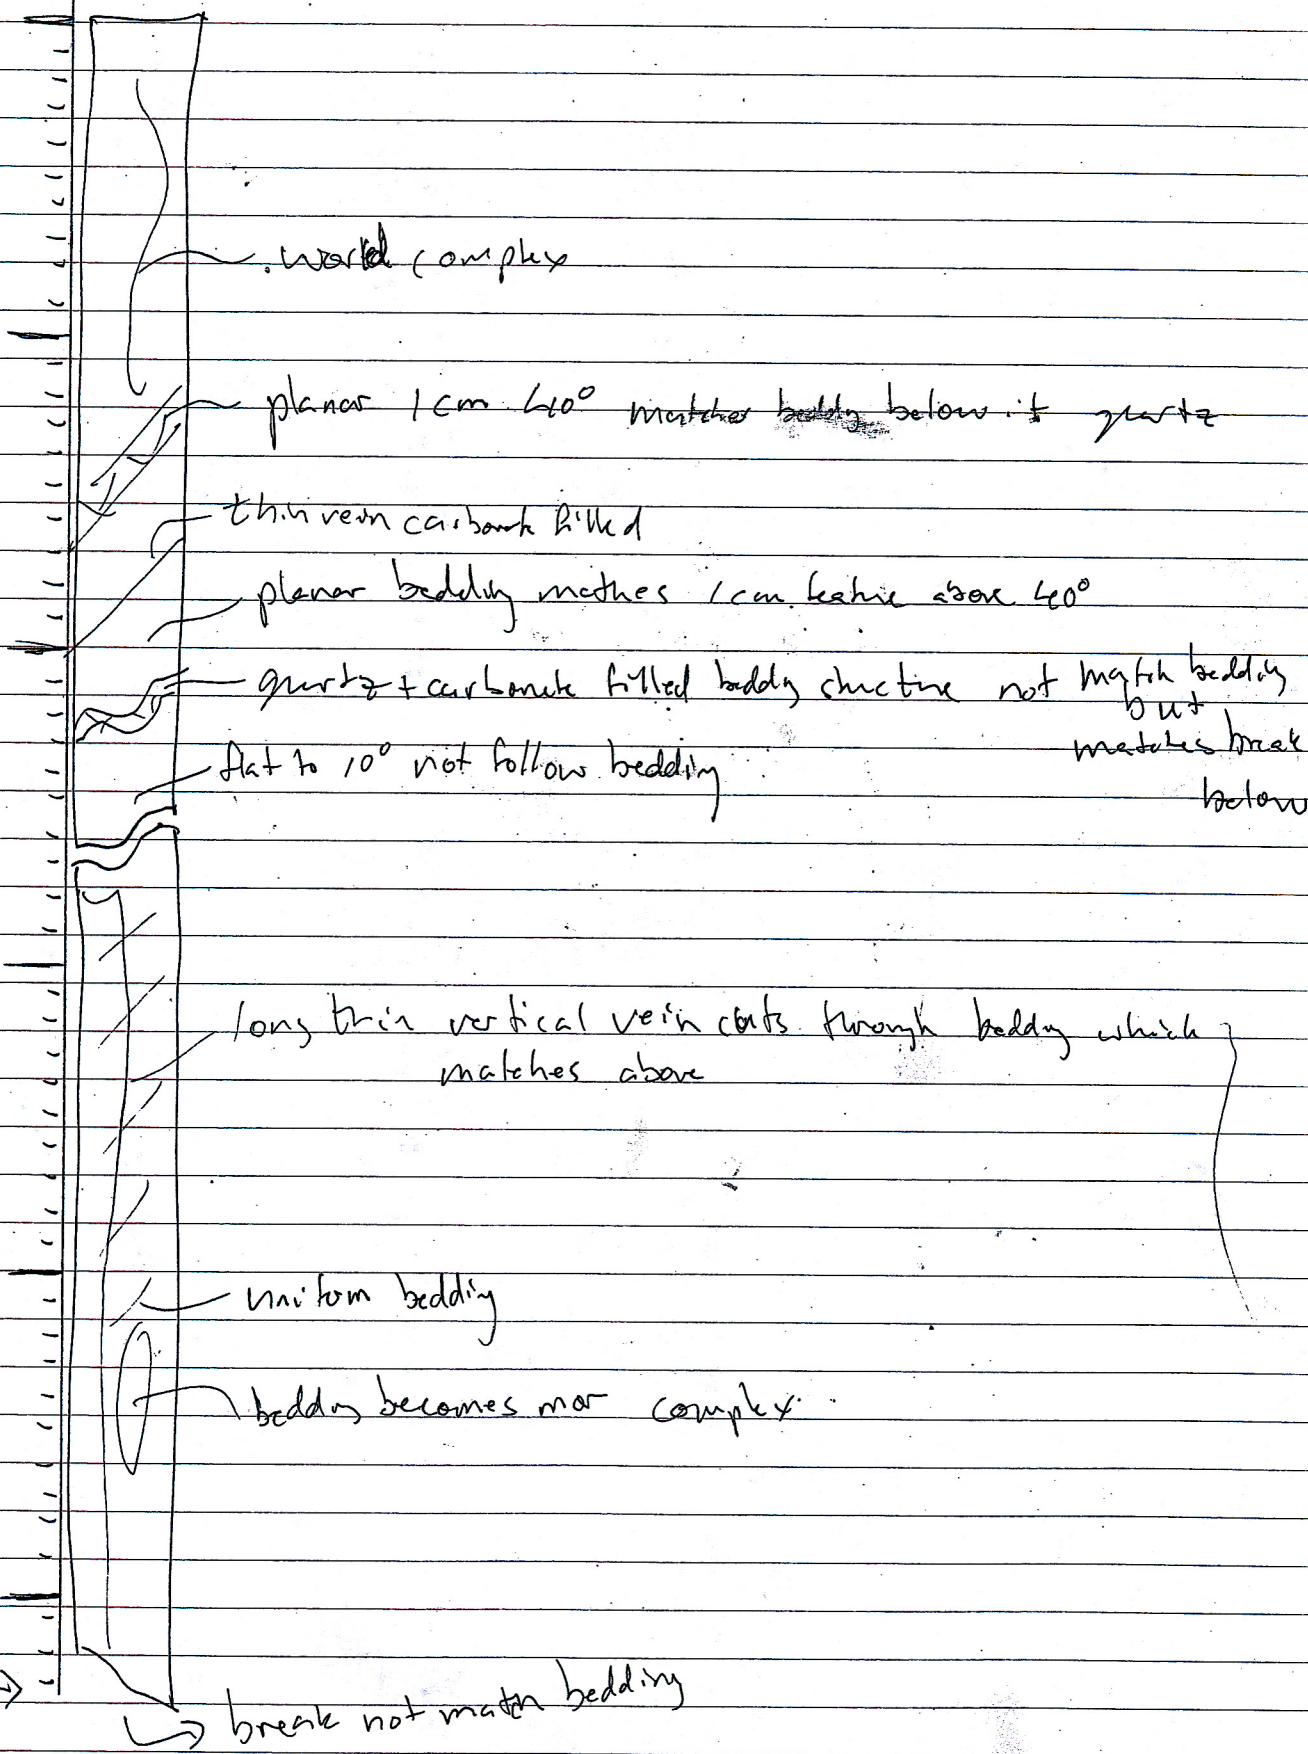 complex
planar 1cm 40° matches beddy below it quartz
thin vein carbonate filled
planar bedding mathes 1cm featrie above 40°
quartz + carbonate filled beddy structure not match bedding
but
matches break
below
flat to 10° not follow bedding
long thin vertical vein cuts through beddy which
matches above
uniform bedding
beddng becomes mor complex
break not match bedding